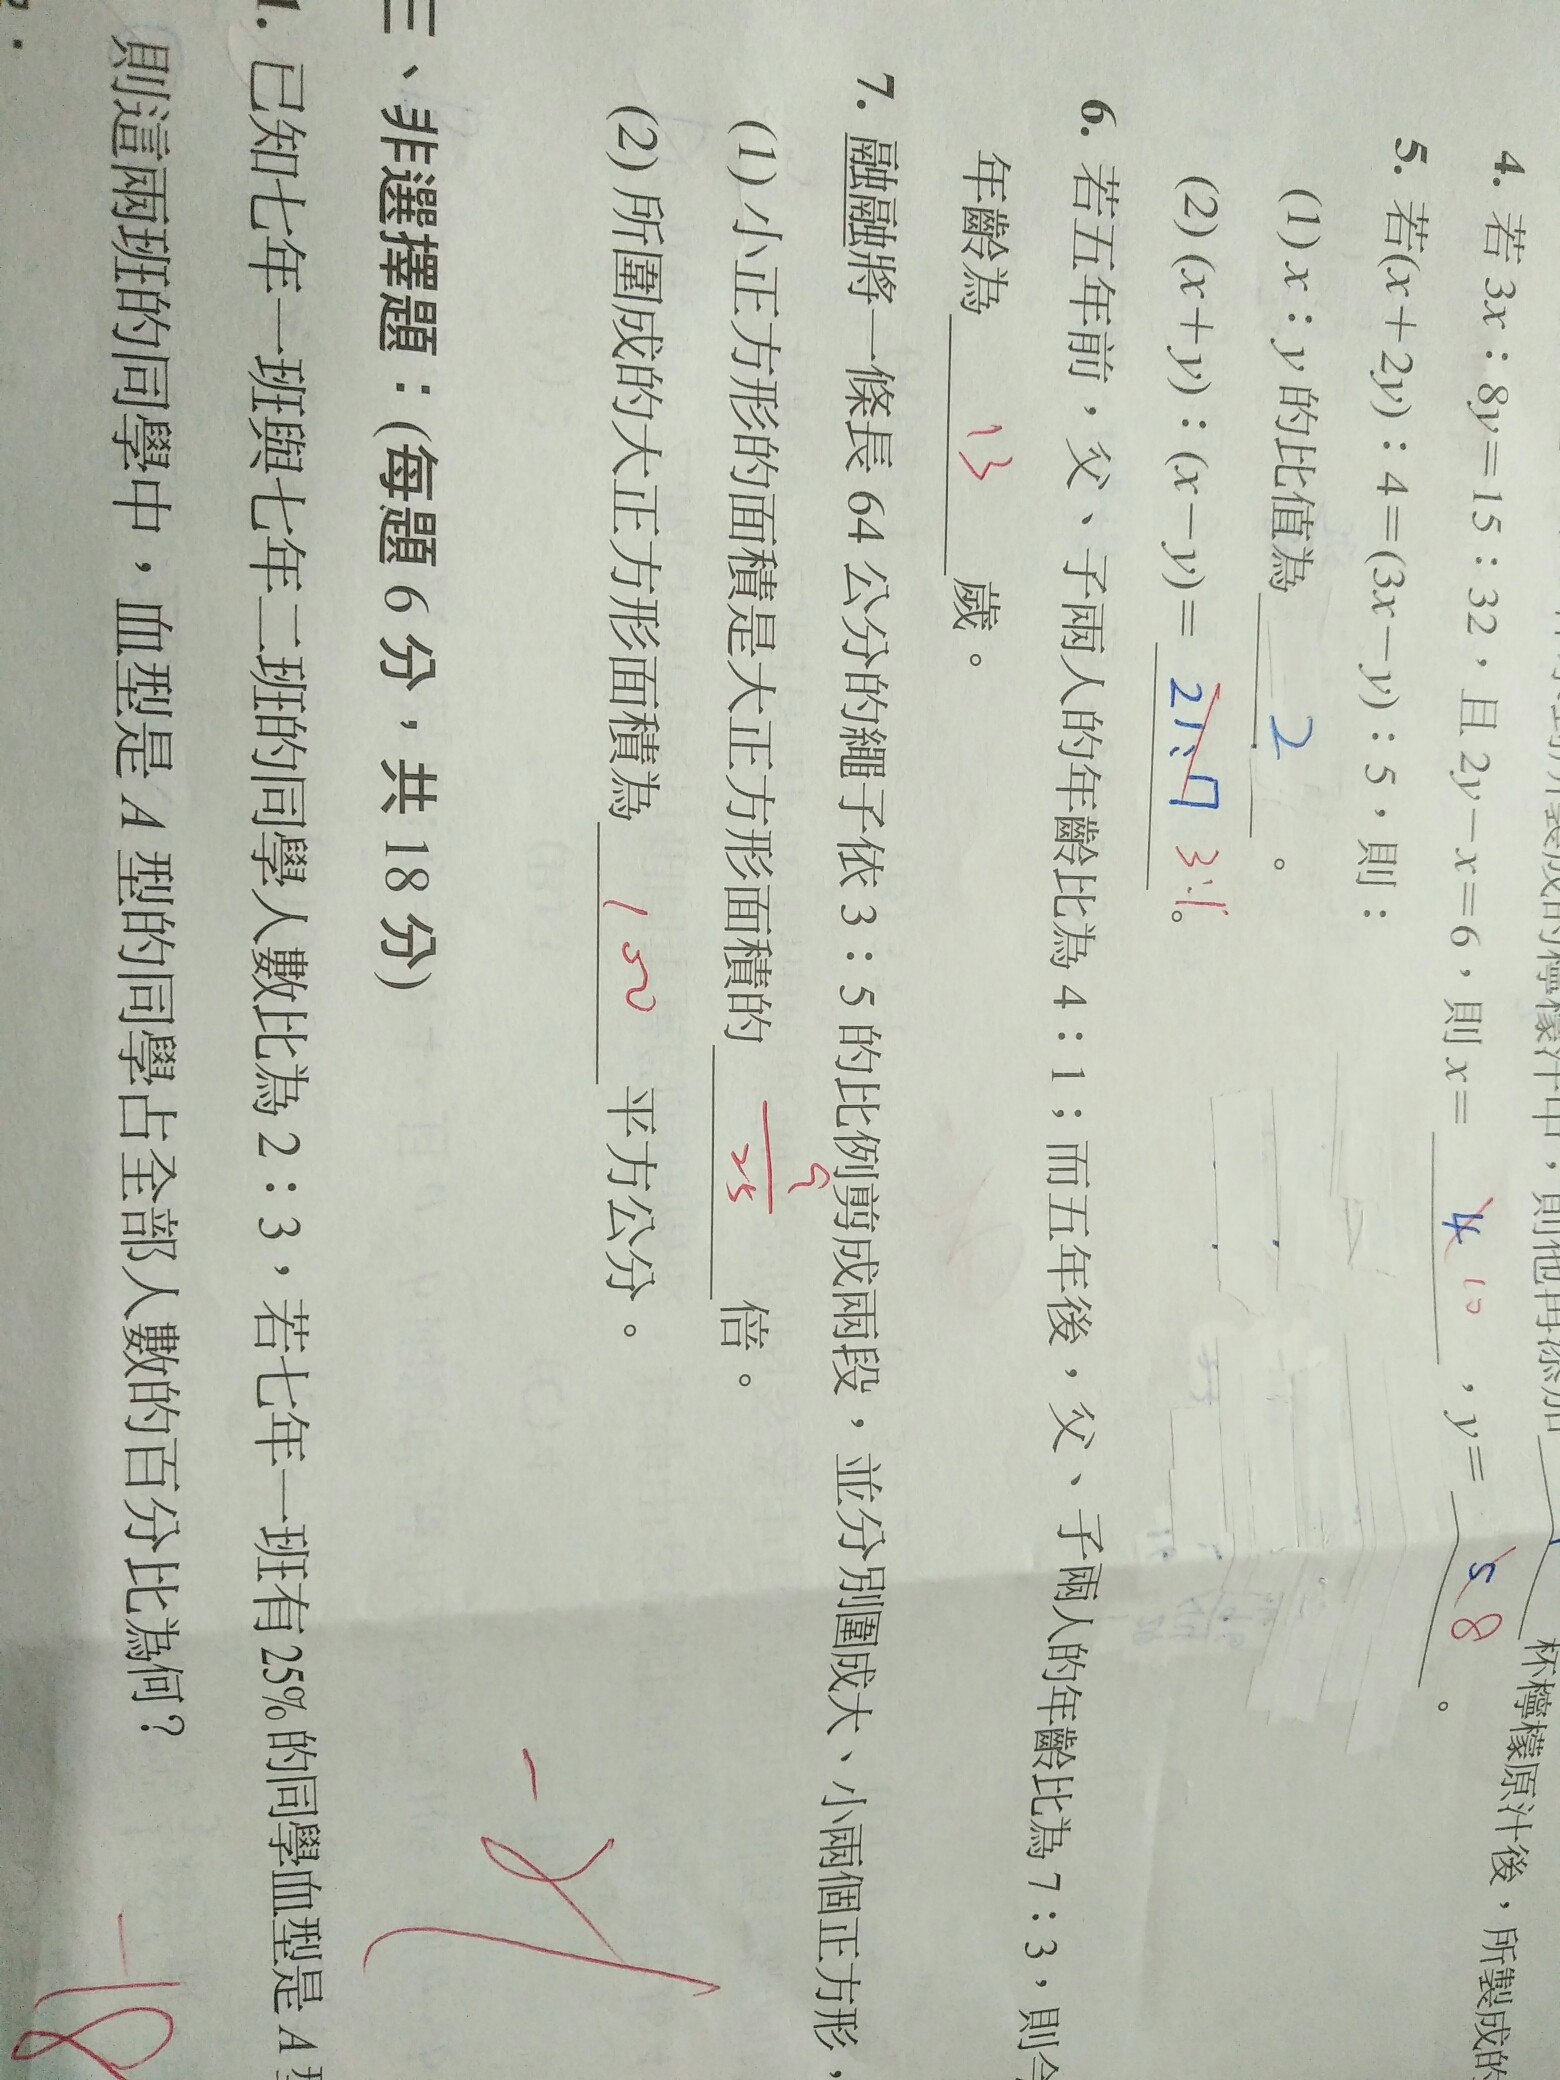 杯檸檬原汁後，所製成的
4. 若 3x：8y＝15：32，且 2y－x＝6，則 x＝ 4 10 ，y＝ 5 8 。
5. 若(x＋2y)：4＝(3x－y)：5，則：
(1) x：y 的比值為 2 。
(2) (x＋y)：(x－y)＝ 3:1 。
6. 若五年前，父、子兩人的年齡比為 4：1；而五年後，父、子兩人的年齡比為 7：3，則今
年齡為 13 歲。
7. 融融將一條長 64 公分的繩子依 3：5 的比例剪成兩段，並分別圍成大、小兩個正方形，
(1) 小正方形的面積是大正方形面積的 9/25 倍。
(2) 所圍成的大正方形面積為 100 平方公分。
三、非選擇題：(每題 6 分，共 18 分)
1. 已知七年一班與七年二班的同學人數比為 2：3，若七年一班有 25%的同學血型是 A 型
則這兩班的同學中，血型是 A 型的同學占全部人數的百分比為何？
-18